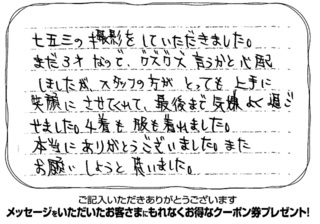 七五三の撮影をしていただきました。
まだ3才なので、グズグズ言うかと心配
しましたが、スタッフの方がとっても上手に
笑顔にさせてくれて、最後まで気嫌よく過ご
せました。4着も服も着れました。
本当にありがとうございました。また
お願いしようと思いました。
ご記入いただきありがとうございます
メッセージをいただいたお客さまにもれなくお得なクーポン券プレゼント!